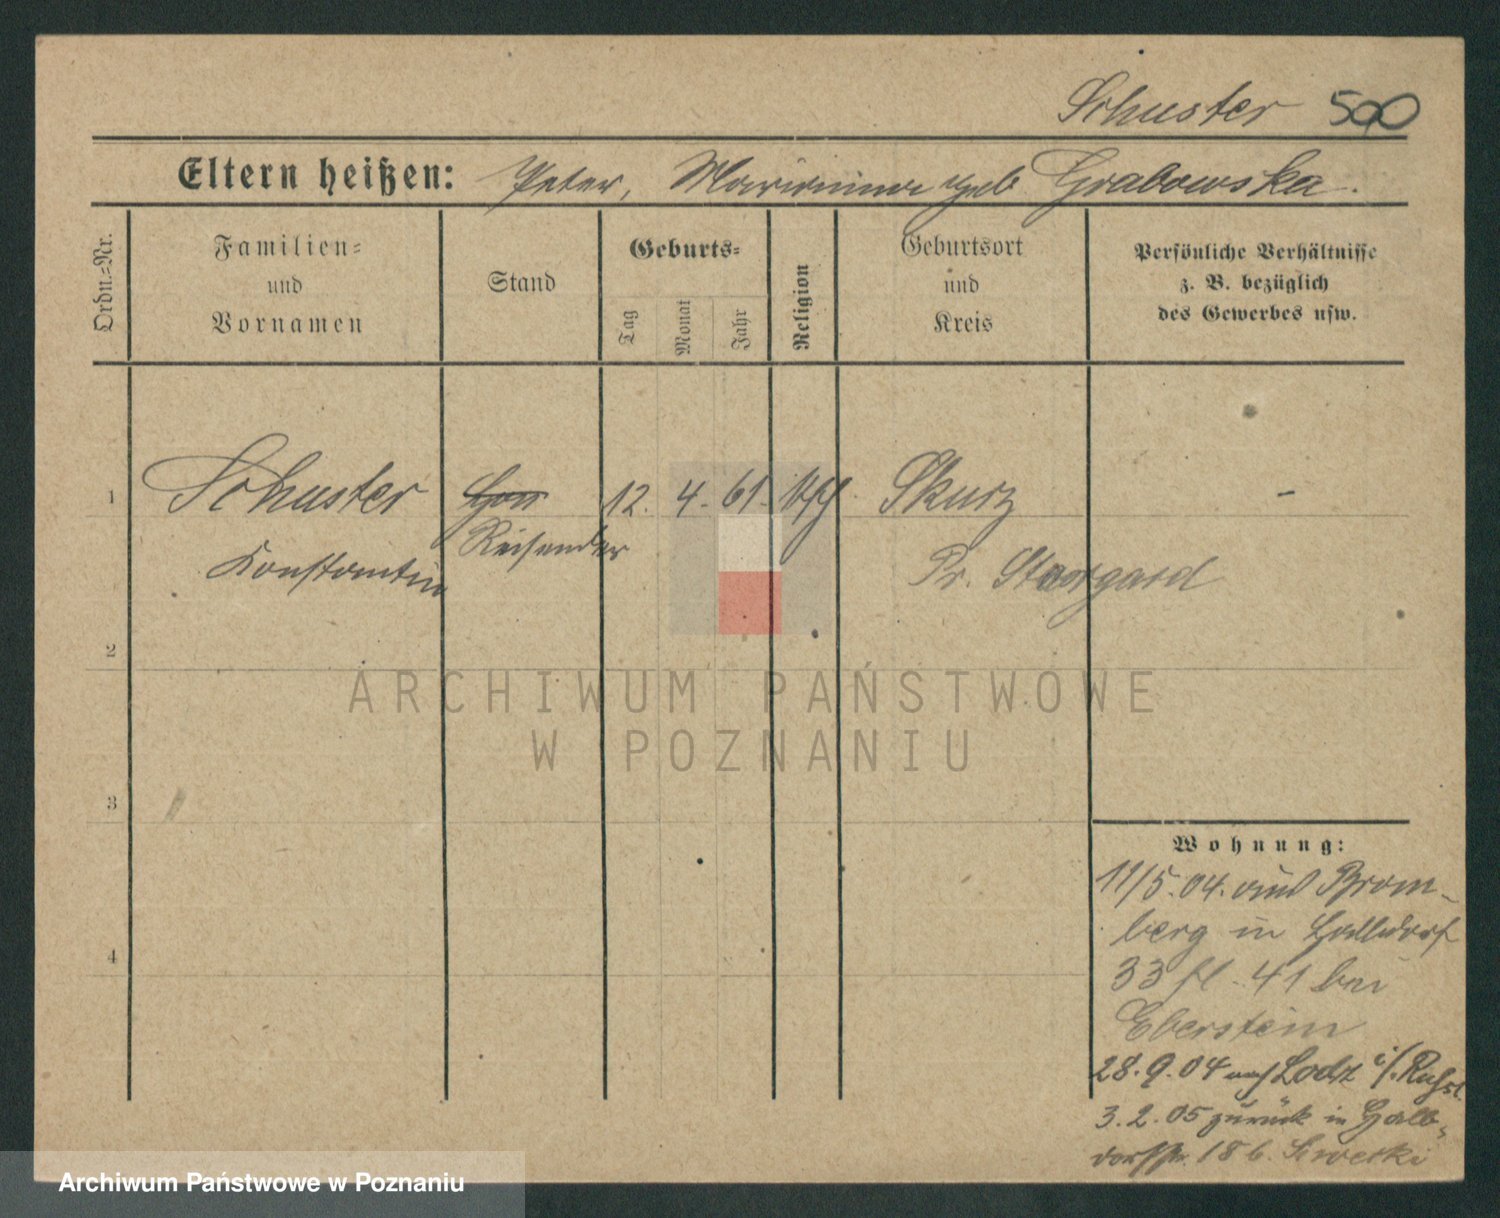 Schuster 590
Eltern heißen: Peter, Marianna geb Grabowska.
Ordn.=Nr.
Familien=
und
Vornamen
Stand
Geburts=
Tag
Monat
Jahr
Religion
Geburtsort
und
Kreis
Persönliche Verhältnisse
z. B. bezüglich
des Gewerbes usw.
1 Schuster 12. 4. 61. kth Skurz –
Reisender
Konstantin
Pr. Stargard
2
3
4
Wohnung:
11/5. 04. aus Brom-
berg in Halbdorf
33 fl. 41 bei
Eberstein
28. 9. 04 nach Lodz i/. Rußl.
3. 2. 05 zurück in Halb-
dorfstr. 18 b.
ARCHIWUM PAŃSTWOWE
W POZNANIU
Archiwum Państwowe w Poznaniu